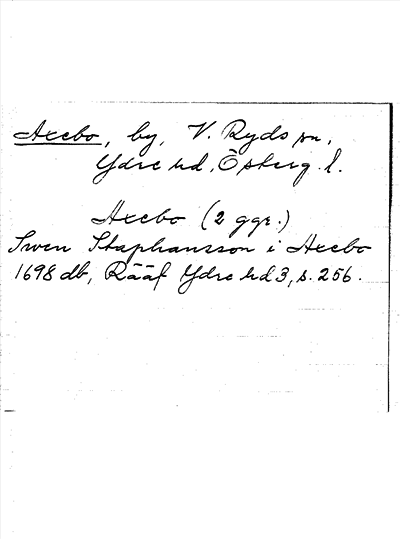 Axebo, by, V. Ryds sn,
Ydre hd, Österg. l.
Axebo (2 ggr.)
Swen Staphansson i Axebo
1698 db, Rääf Ydre hd 3, s. 256.